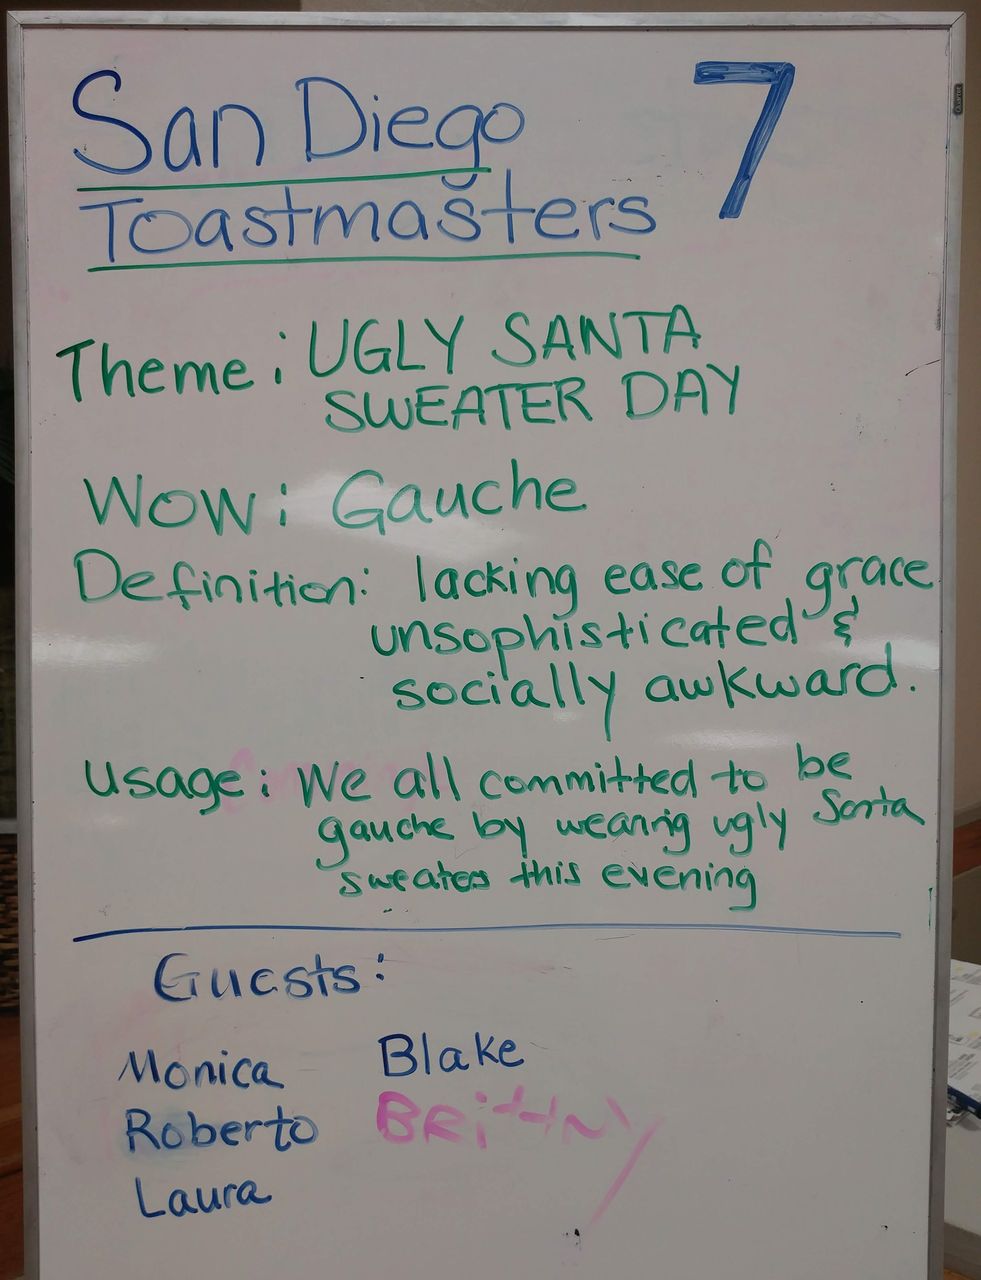 San Diego 7
Toastmasters
Theme: UGLY SANTA
SWEATER DAY
WOW: Gauche
Definition: lacking ease of grace
unsophisticated &
socially awkward.
Usage: We all committed to be
gauche by wearing ugly Santa
sweaters this evening
Guests:
Monica Blake
Roberto BRittNY
Laura
Quartet